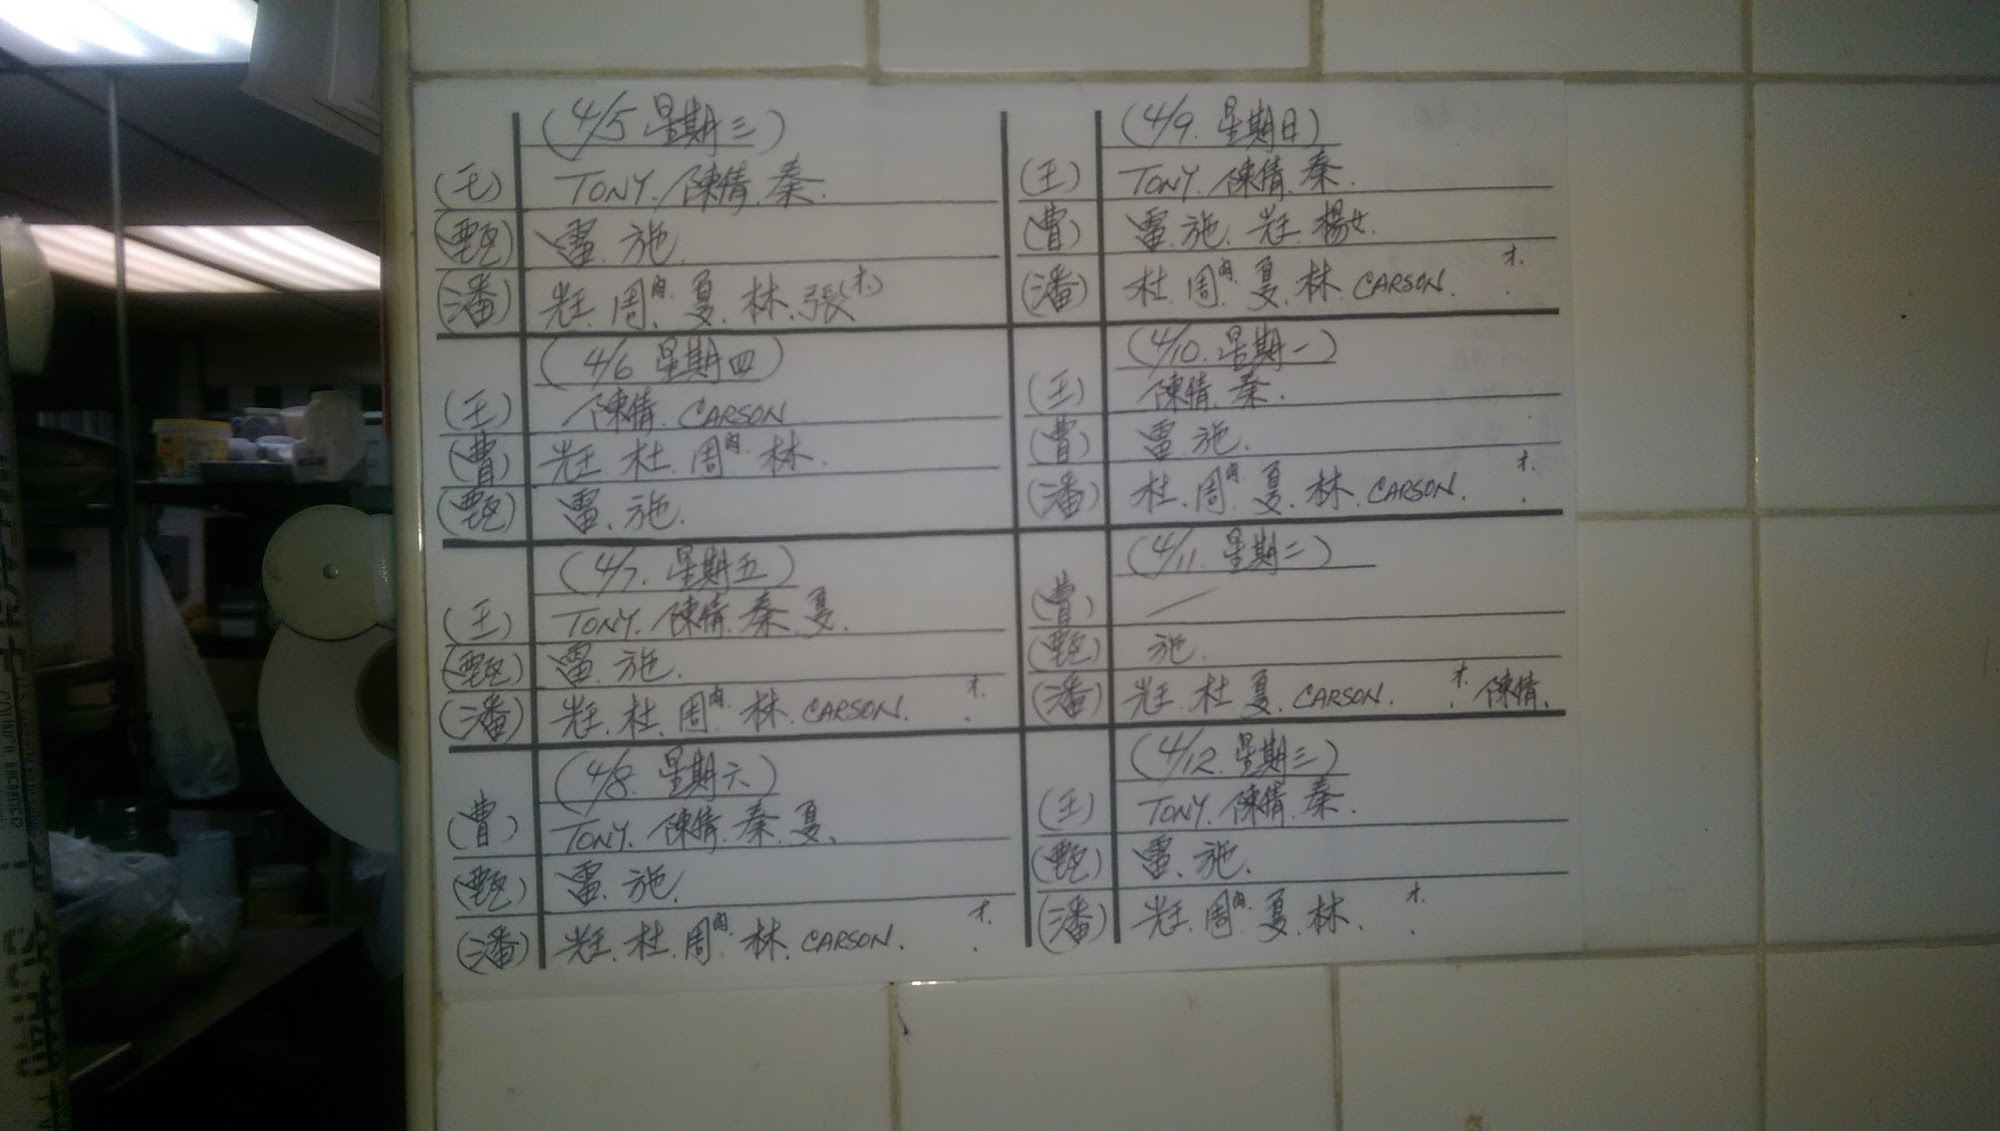 (4/5 星期三)
(王) TONY. 陳倩. 秦.
(甄) 雷. 施.
(潘) 周肉. 夏. 林. 張(才.)
(4/6 星期四)
(王) 陳倩. CARSON
(曹) 杜. 周肉. 林.
(甄) 雷. 施.
(4/7. 星期五)
(王) TONY. 陳倩. 秦. 夏.
(甄) 雷. 施.
(潘) 杜. 周肉. 林. CARSON. 才.
(4/8. 星期六)
(曹) TONY. 陳倩. 秦. 夏.
(甄) 雷. 施.
(潘) 杜. 周肉. 林. CARSON. 才.
(4/9. 星期日)
(王) TONY. 陳倩. 秦.
(曹) 雷. 施. 楊女.
(潘) 杜. 周肉. 夏. 林. CARSON. 才.
(4/10. 星期一)
(王) 陳倩. 秦.
(曹) 雷. 施.
(潘) 杜. 周肉. 夏. 林. CARSON. 才.
(4/11. 星期二)
(曹) ／
(甄) 施.
(潘) 杜. 夏. CARSON. 才. 陳倩.
(4/12. 星期三)
(王) TONY. 陳倩. 秦.
(甄) 雷. 施.
(潘) 周肉. 夏. 林. 才.